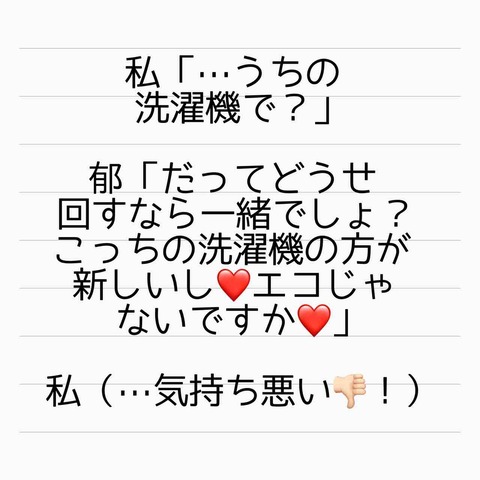 私「…うちの
洗濯機で？」
郁「だってどうせ
回すなら一緒でしょ？
こっちの洗濯機の方が
新しいし❤️エコじゃ
ないですか❤️」
私（…気持ち悪い👎🏻！）